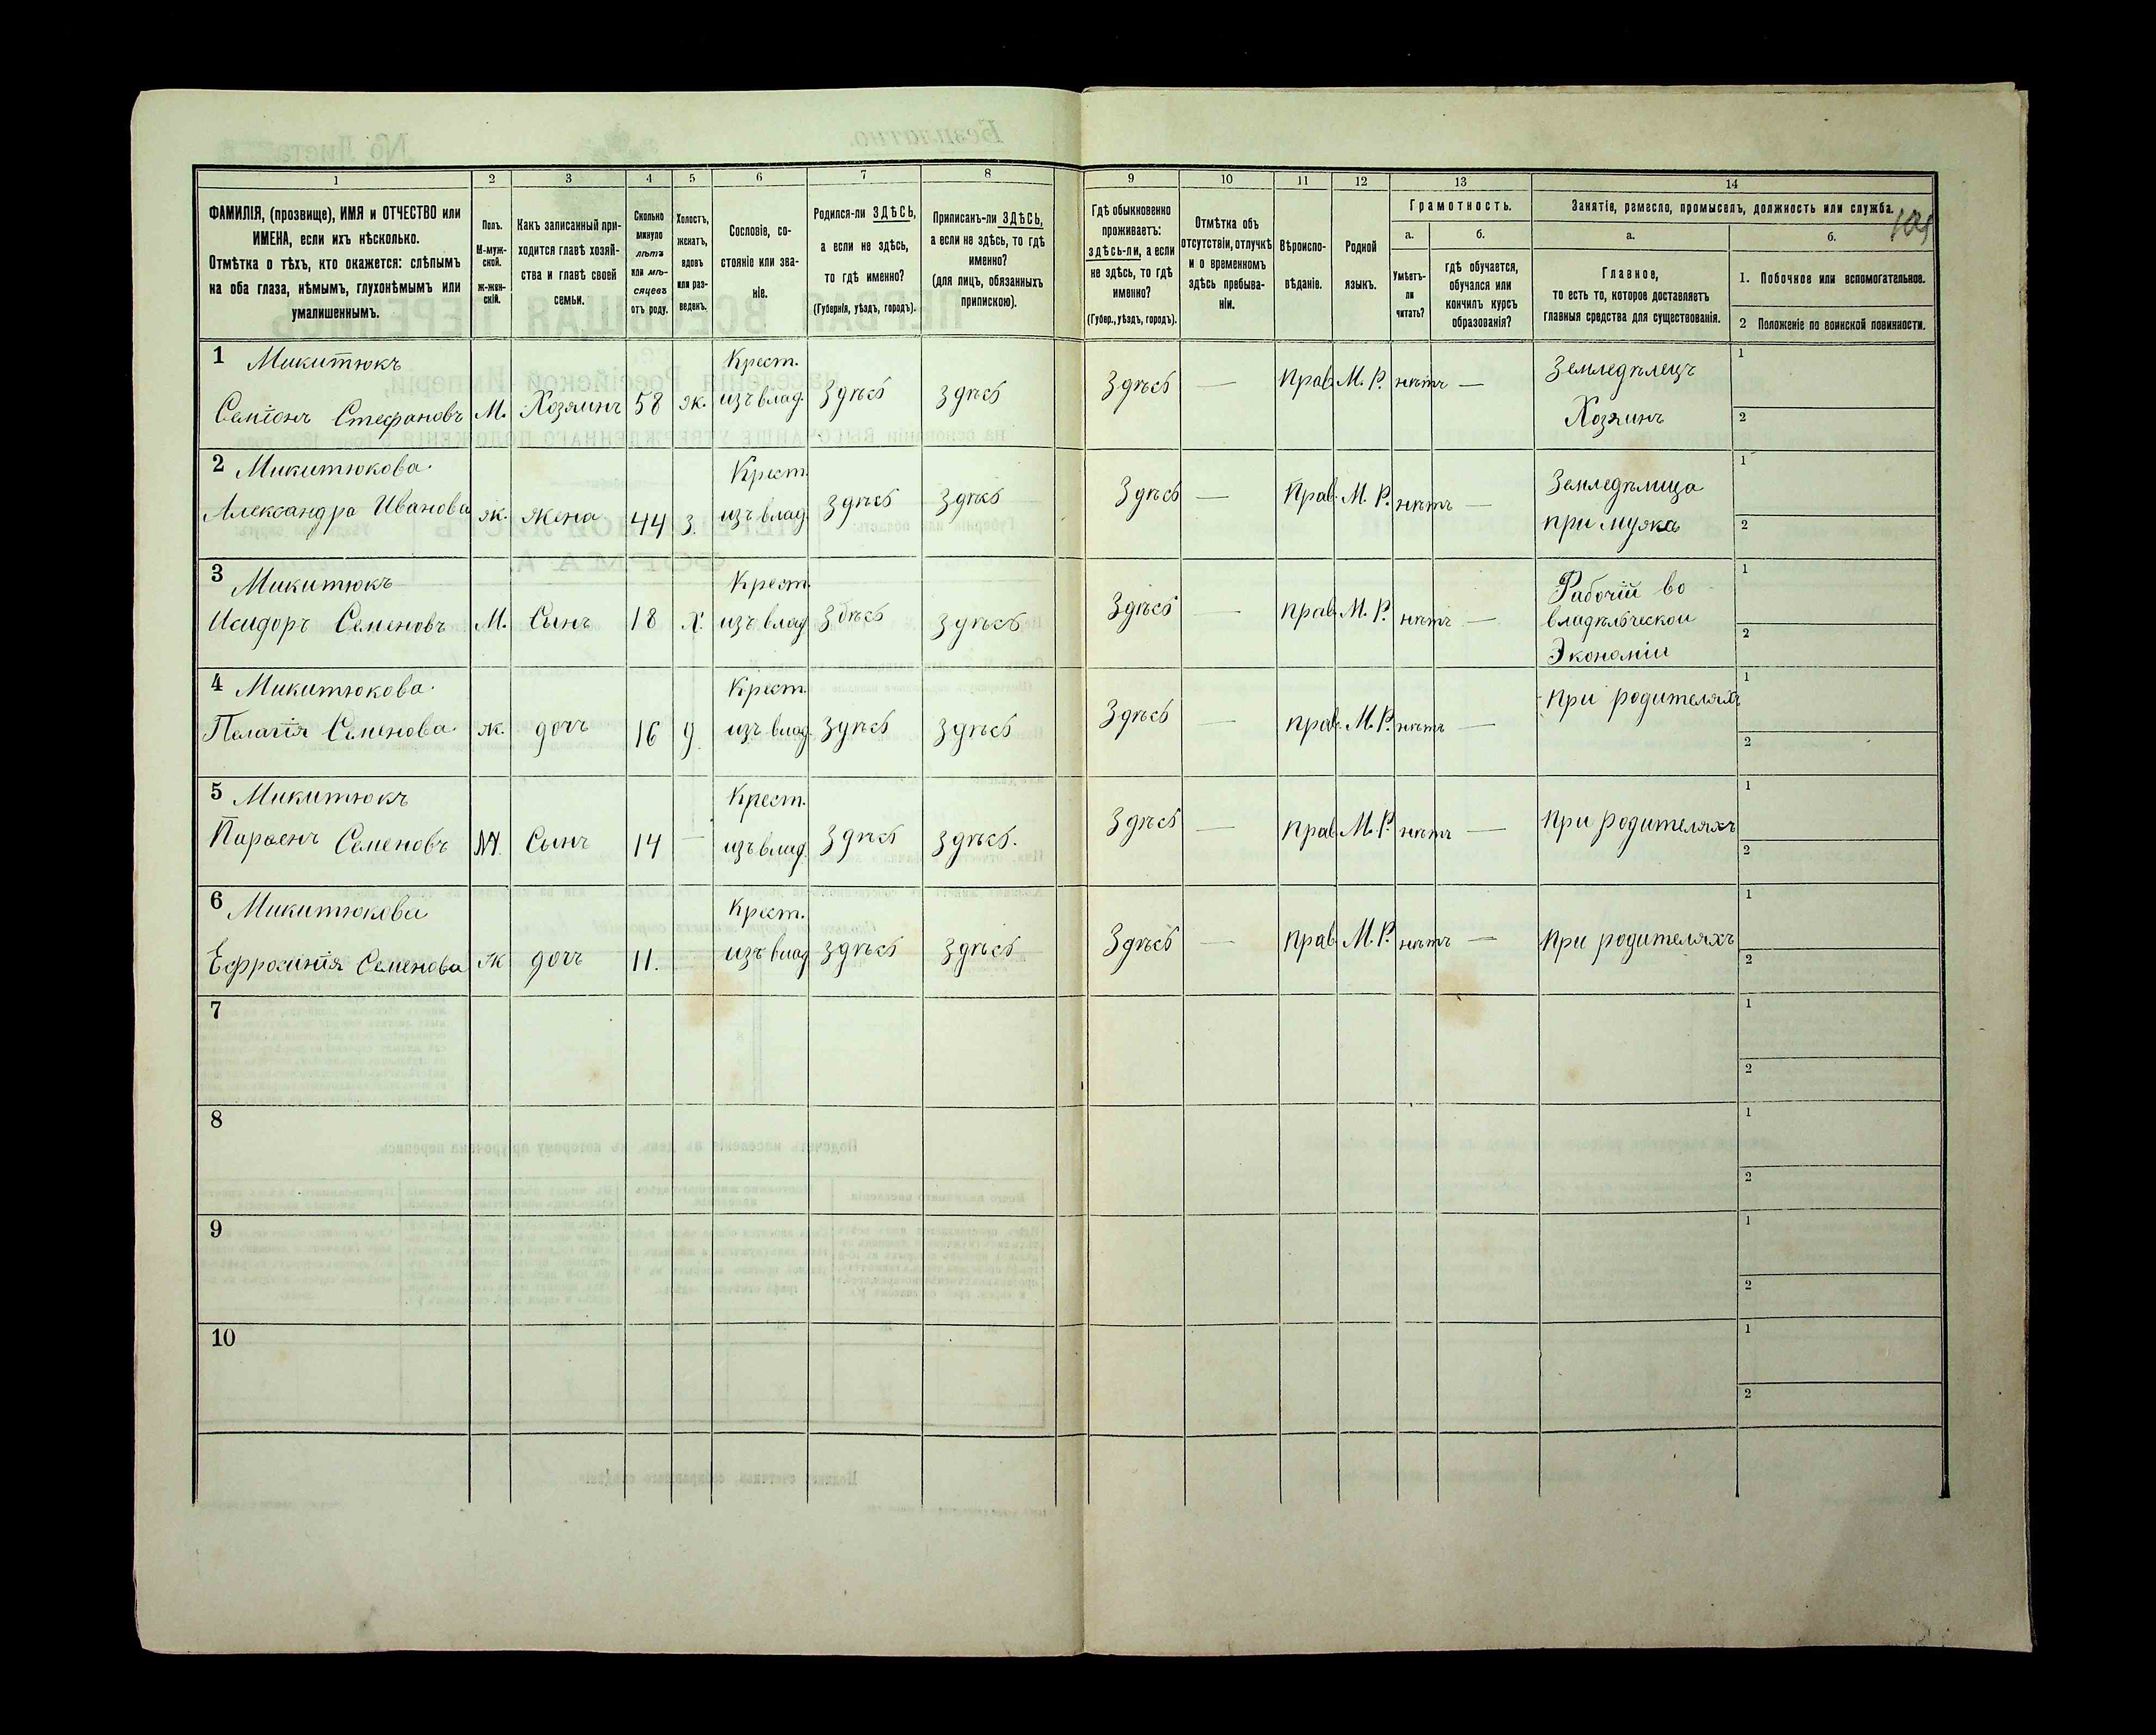 1 2 3 4 5 6 7 8 9 10 11 12 13 14
ФАМИЛІЯ, (прозвище), ИМЯ и ОТЧЕСТВО или
ИМЕНА, если ихъ нѣсколько.
Отмѣтка о тѣхъ, кто окажется: слѣпымъ
на оба глаза, нѣмымъ, глухонѣмымъ или
умалишеннымъ.
Полъ.
М-муж-
ской.
ж-жен-
скій.
Какъ записанный при-
ходится главѣ хозяй-
ства и главѣ своей
семьи.
Сколько
минуло
лѣтъ
или мѣ-
сяцевъ
отъ роду.
Холостъ,
женатъ,
вдовъ
или раз-
веденъ.
Сословіе, со-
стояніе или зва-
ніе.
Родился-ли ЗДѢСЬ,
а если не здѣсь,
то гдѣ именно?
(Губернія, уѣздъ, городъ).
Приписанъ-ли ЗДѢСЬ,
а если не здѣсь, то гдѣ
именно?
(для лицъ, обязанныхъ
припискою).
Гдѣ обыкновенно
проживаетъ:
здѣсь-ли, а если
не здѣсь, то гдѣ
именно?
(Губер., уѣздъ, городъ).
Отмѣтка объ
отсутствіи, отлучкѣ
и о временномъ
здѣсь пребыва-
ніи.
Вѣроиспо-
вѣданіе.
Родной
языкъ.
Грамотность.
а.
Умѣетъ-
ли
читать?
б.
гдѣ обучается,
обучался или
кончилъ курсъ
образованія?
Занятіе, ремесло, промыселъ, должность или служба.
а.
Главное,
то есть то, которое доставляетъ
главныя средства для существованія.
б.
1. Побочное или вспомогательное.
2 Положеніе по воинской повинности.
1 Микитюкъ
Семіонъ Стефановъ М. Хозяинъ 58 ж. Крест. изъ влад. Здѣсь здѣсь Здѣсь — Прав. М. Р. нѣтъ — Земледѣлецъ Хозяинъ 1 2
2 Микитюкова
Александра Иванова ж. жена 44 з. Крест. изъ влад. Здѣсь Здѣсь Здѣсь — Прав. М. Р. нѣтъ — Земледѣлица при мужѣ 1 2
3 Микитюкъ
Исидоръ Семеновъ М. Сынъ 18 х. Крест. изъ влад. Здѣсь здѣсь Здѣсь — Прав. М. Р. нѣтъ — Рабочій во владѣльческои Экономіи 1 2
4 Микитюкова.
Пелагія Семенова ж. дочь 16 д Крест. изъ влад. здѣсь здѣсь Здѣсь — Прав. М. Р. нѣтъ — При родителяхъ 1 2
5 Микитюкъ
Парѳенъ Семеновъ М. Сынъ 14 — Крест. изъ влад. Здѣсь здѣсь. Здѣсь — Прав. М. Р. нѣтъ — При родителяхъ 1 2
6 Микитюкова
Ефросинія Семенова ж дочь 11. Крест. изъ влад. здѣсь здѣсь Здѣсь — Прав. М. Р. нѣтъ — При родителяхъ 1 2
7 1 2
8 1 2
9 1 2
10 1 2